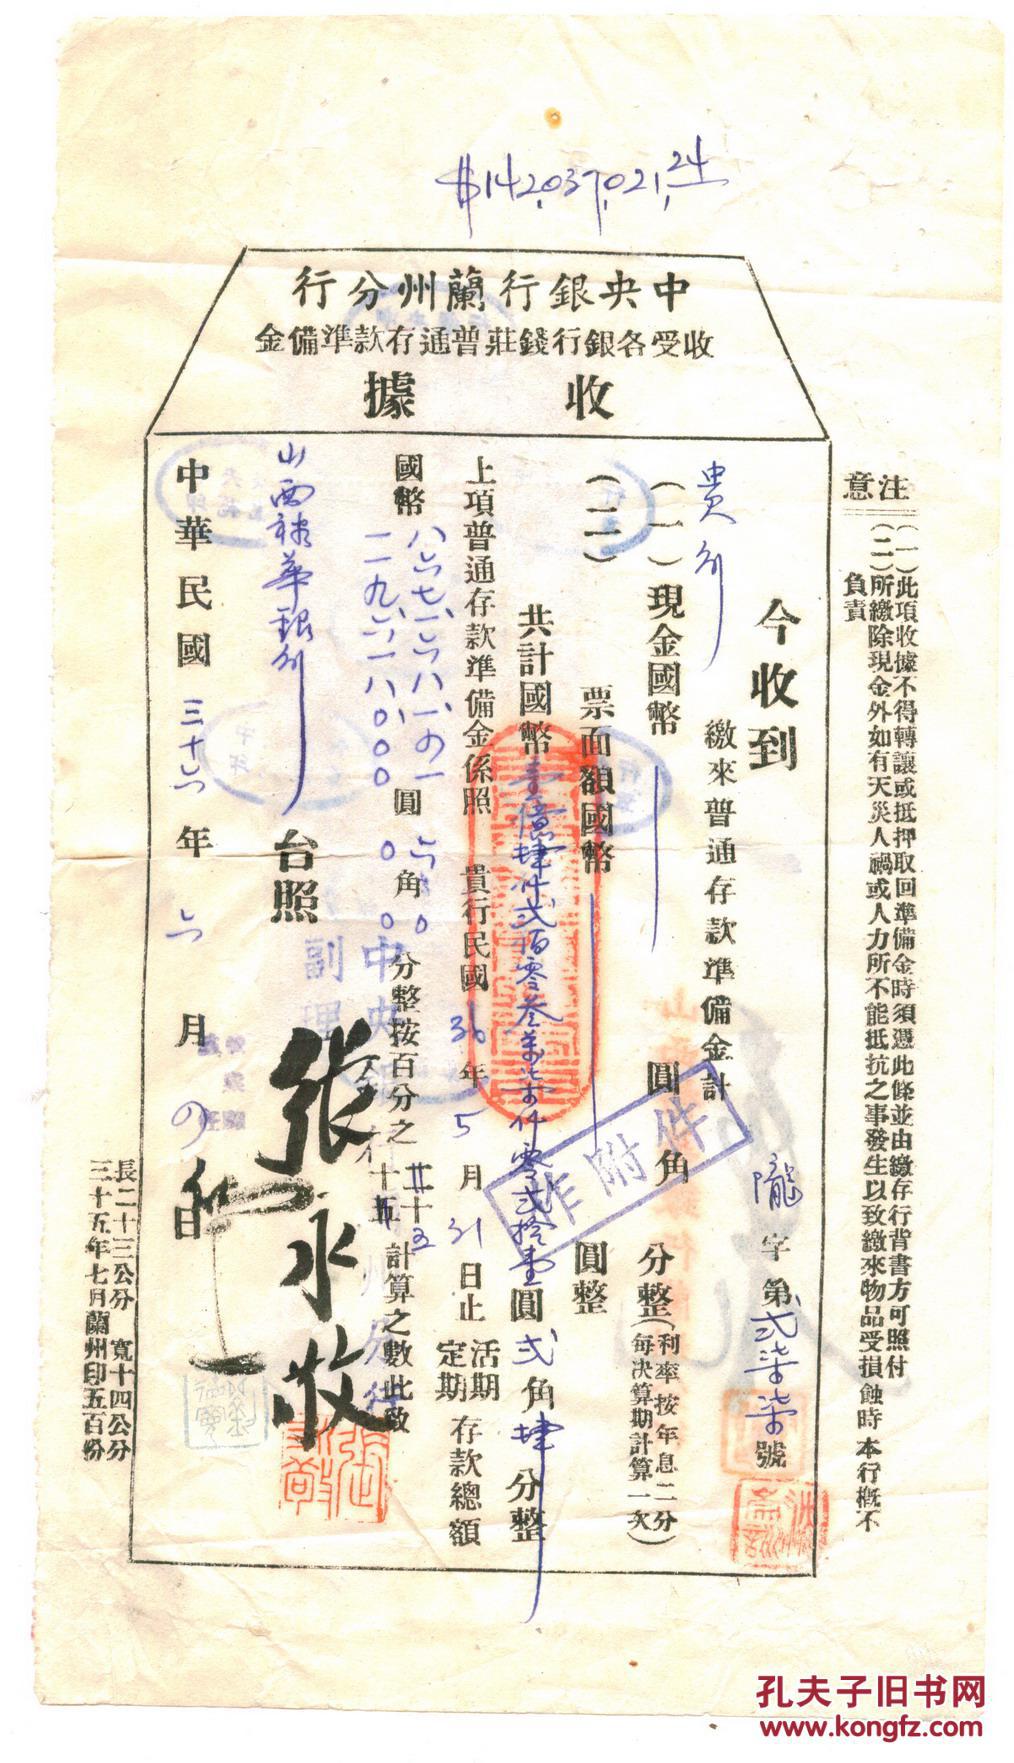 $142,037,021.24
中央銀行蘭州分行
收受各銀行錢莊普通存款準備金
收據
注意
(一)此項收據不得轉讓或抵押取回準備金時須憑此條並由繳存行背書方可照付
(二)所繳除現金外如有天災人禍或人力所不能抵抗之事發生以致繳來物品受損蝕時本行概不
負責
隴字第弍柒柒號
今收到
貴行
繳來普通存款準備金計
(一)現金國幣 圓 角 分整(利率按年息二分
每決算期計算一次)
(二) 票面額國幣 圓整
共計國幣壹億肆仟弍佰零叁萬柒仟零弍拾壹圓弍角肆分整
上項普通存款準備金係照 貴行民國36年5月31日止活期
定期存款總額
國幣八六七、一六八、一〇一圓六〇
二一九、六一八、〇〇〇 〇角〇
分整按百分之
十五
廿十五
計算之數此致
山西裕華銀行
台照
中央
副理
張永敬
中華民國三十六年六月〇日
作附件
長二十三公分 寬十四公分
三十五年七月蘭州印五百份
孔夫子旧书网
www.kongfz.com